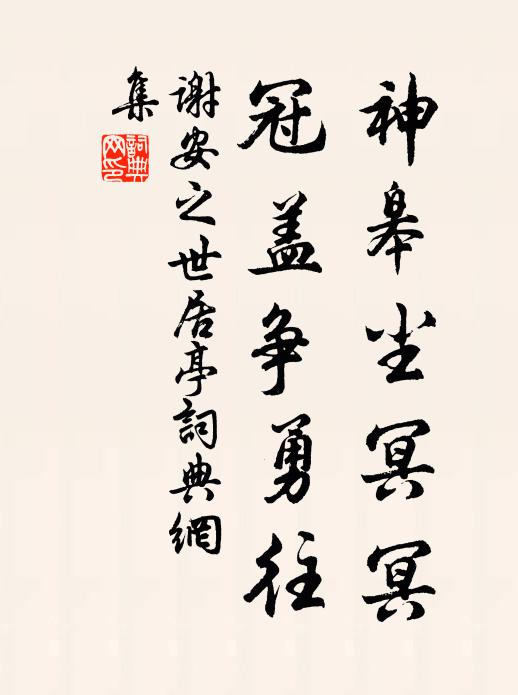 神皋尘冥冥
冠盖争勇往
谢安之世居亭詞典網
集
詞典
网印